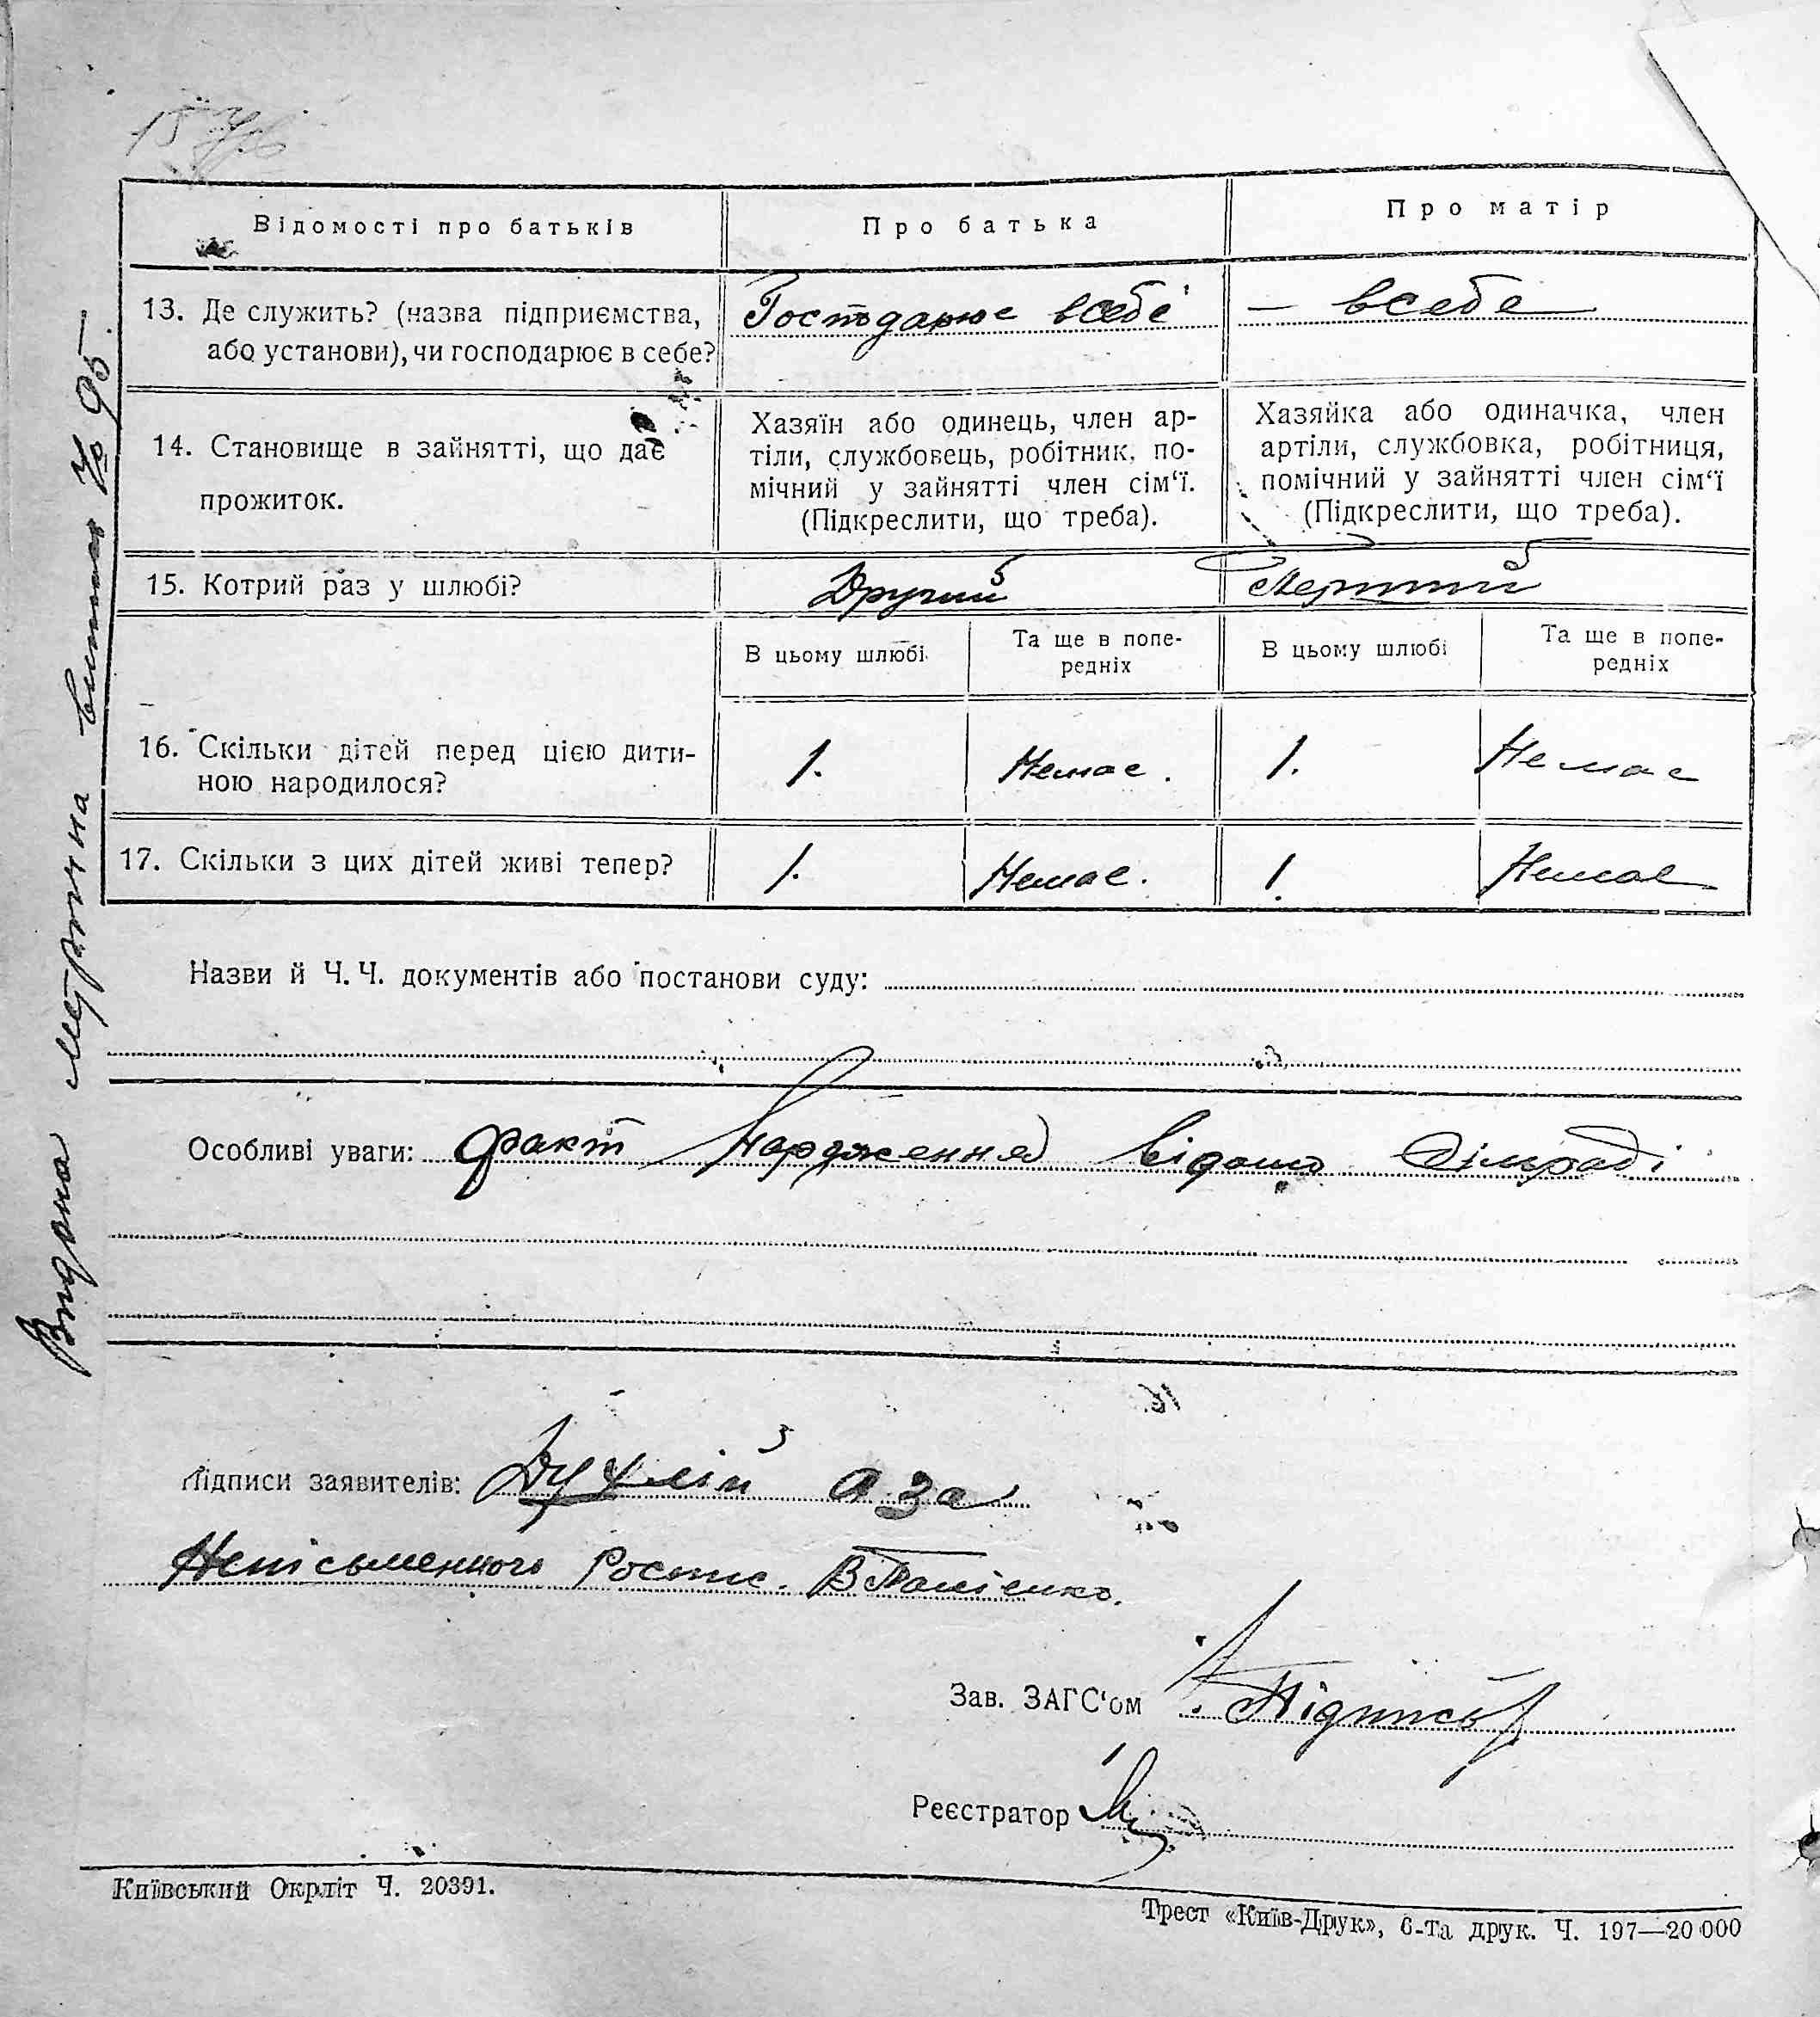 Відомості про батьків
Про батька
Про матір
13. Де служить? (назва підприємства,
або установи), чи господарює в себе?
Господарює всебе
— всебе
14. Становище в зайнятті, що дає
прожиток.
Хазяїн або одинець, член ар-
тіли, службовець, робітник, по-
мічний у зайнятті член сім‘ї.
(Підкреслити, що треба).
Хазяйка або одиначка, член
артіли, службовка, робітниця,
помічний у зайнятті член сім‘ї
(Підкреслити, що треба).
15. Котрий раз у шлюбі?
Другий
Перший
В цьому шлюбі
Та ще в попе-
редніх
В цьому шлюбі
Та ще в попе-
редніх
16. Скільки дітей перед цією дити-
ною народилося?
1.
Немає.
1.
Немає
17. Скільки з цих дітей живі тепер?
1.
Немає.
1.
Немає
Назви й Ч. Ч. документів або постанови суду:
Особливі уваги: Факт народження відомо сільраді
Підписи заявителів: Духлій а за
Непісьменного Роспис.
Зав. ЗАГС‘ом
Реєстратор
Київський Окрліт Ч. 20391.
Трест «Київ-Друк», 6-та друк. Ч. 197—20 000
Видана метрична випись № 95.